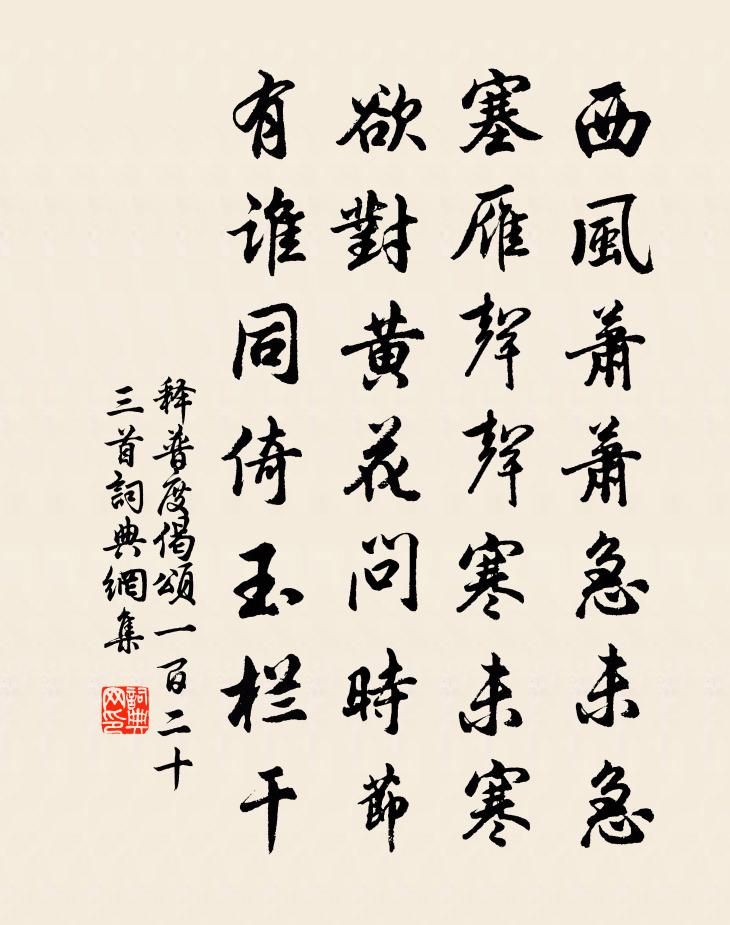 西風蕭蕭急未急
塞雁聲聲寒未寒
欲對黃花問時節
有誰同倚玉栏干
释普度偈頌一百二十
三首詞典網集
詞典
网印